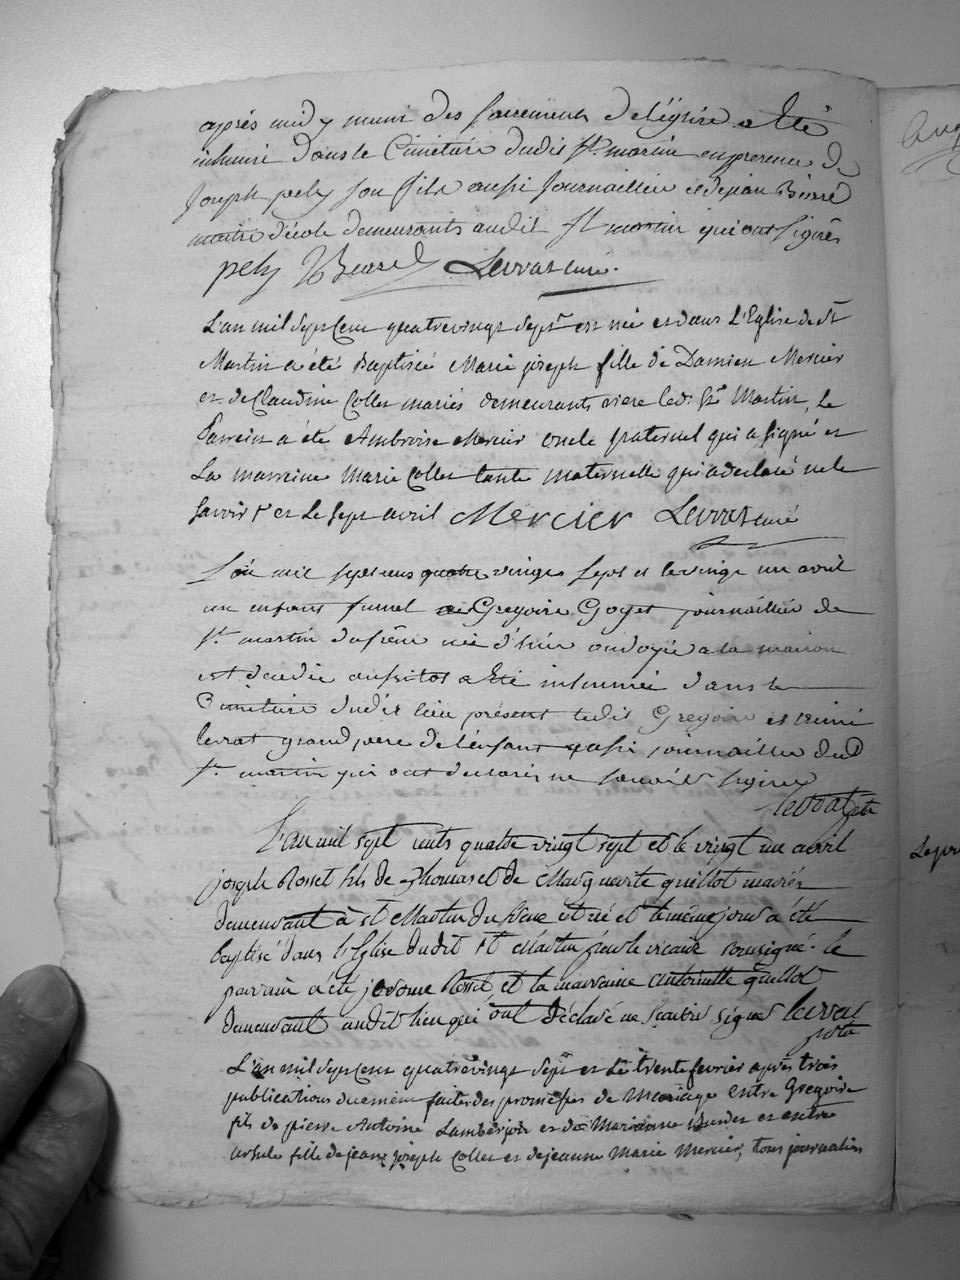 après midy muni des sacrements de léglise a Eté
inhumé dans le Cimetiere dudit St martin en presence de
Joseph pely son fils aussi Journaillier et de jean
maitre décole demeurants audit St martin qui ont signés
pely Levrat curé.
L'an mil sept cent quatrevingt sept est née et dans L'Eglise de St
Martin a été Baptisée Marie joseph fille de Damien Mercier
et de Claudine Collet mariés demeurants riere led. St Martin, Le
Parrein a été Ambroise Mercier oncle paternel qui a signé et
La marreine Marie Collet tante maternelle qui a declaré ne le
savoir et Le sept avril Mercier Levrat curé
L'an mil sept cens quatre vingt sept et le vingt un avril
un enfant de Gregoire Goget journaillier de
St martin dufrêne née d'hier ondoyé a la maison
est decedée aussitot a Eté inhumée dans le
Cimetiere dudit lieu présent ledit Gregoire et
levrat grand pere de lenfant aussi journaillier dud
St martin qui ont declarés ne savoir signer
levrat
L'an mil sept cents quatre vingt sept et le vingt un avril
joseph Rosset fils de Thomas et de Marguerite quillot mariés
demeurant à st Martin du frêne est né et le même jour a été
baptisé dans l'Eglise dudit St Martin par le vicaire soussigné. le
parrain a été jerome Rosset et la marraine antoinette quillot
demeurant audit lieu qui ont déclaré ne scavoir signer levrat
L'an mil sept cent quatrevingt sept et Le trente fevrier après trois
publications duement faites des promesses de Mariage entre Gregoire
fils de pierre Antoine Lamberjoie et de Marianne et entre
ursule fille de jean joseph Collet et de jeanne Marie Mercier, tous journaliers